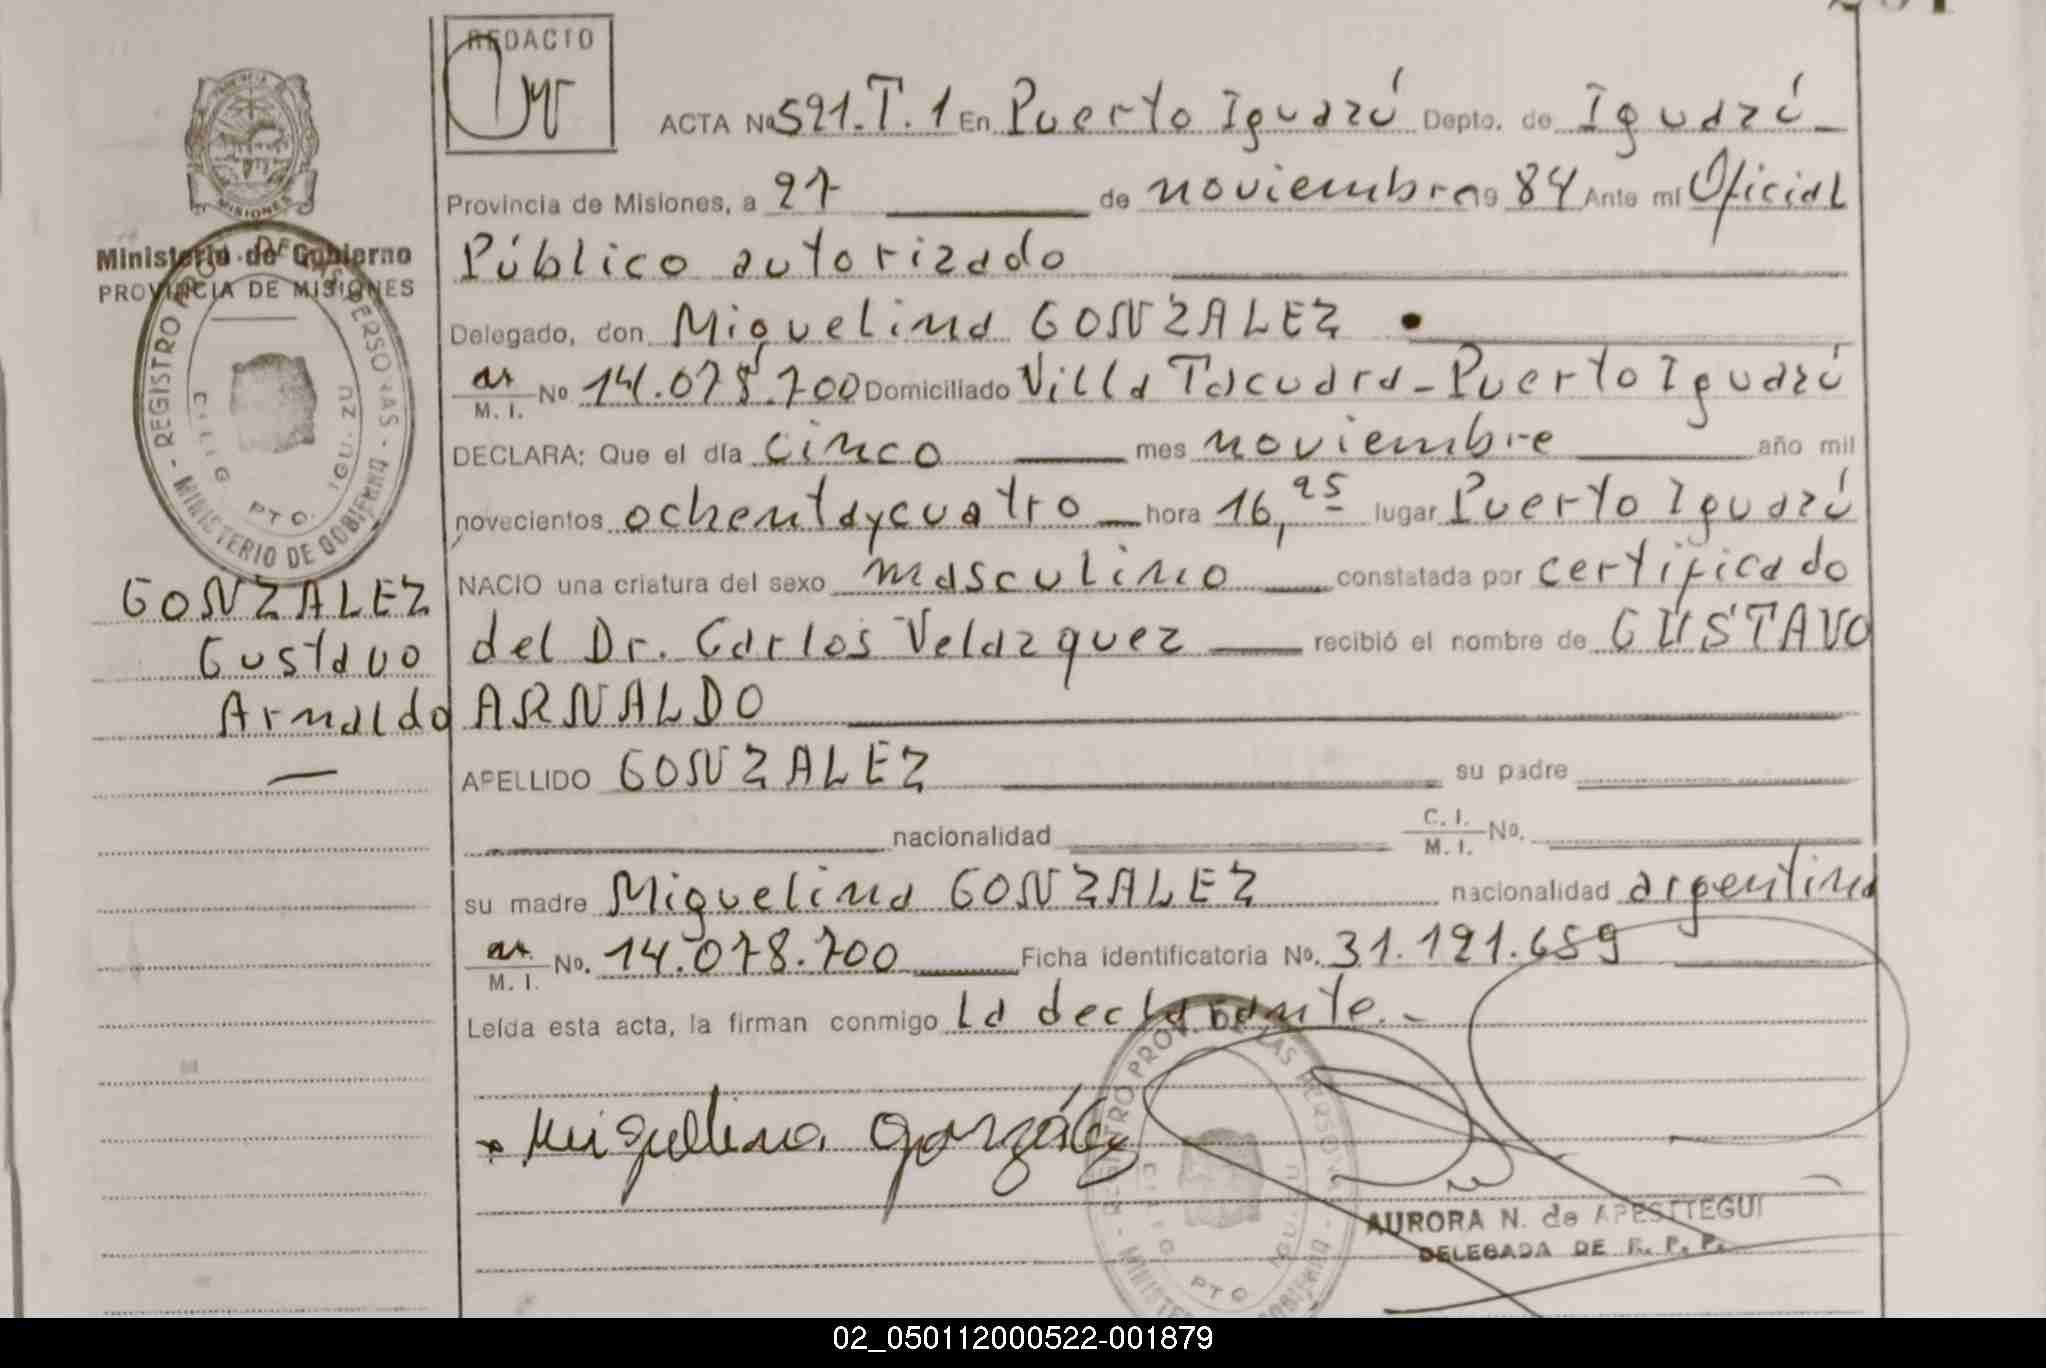 REDACIO
ACTA Nº 521.T.1 En Puerto Iguazú Depto. de Iguazú
Provincia de Misiones, a 27 de noviembre 19 84 Ante mí Oficial
Público autorizado
Delegado, don Miguelina GONZALEZ
M. I. Nº 14.078.700 Domiciliado Villa Tacuara - Puerto Iguazú
DECLARA: Que el día cinco mes noviembre año mil
novecientos ochenta y cuatro hora 16,25 lugar Puerto Iguazú
NACIO una criatura del sexo masculino constatada por certificado
del Dr. Carlos Velazquez recibió el nombre de GUSTAVO
ARNALDO
APELLIDO GONZALEZ su padre
nacionalidad C. I. M. I. Nº.
su madre Miguelina GONZALEZ nacionalidad argentina
M. I. Nº. 14.078.700 Ficha identificatoria Nº. 31.121.659
Leída esta acta, la firman conmigo la declarante.-
Miguelina González
AURORA N. de APESTTEGUI
DELEGADA DE R. P. P.
MISIONES
Ministerio de Gobierno
PROVINCIA DE MISIONES
REGISTRO PROV. DE LAS PERSONAS - MINISTERIO DE GOBIERNO
PTO. IGUAZU
GONZALEZ
Gustavo
Arnaldo
REGISTRO PROV. DE LAS PERSONAS - MINISTERIO DE GOBIERNO
PTO. IGUAZU
02_050112000522-001879